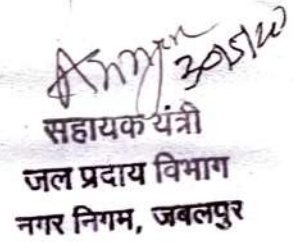 30/5/20
सहायक यंत्री
जल प्रदाय विभाग
नगर निगम, जबलपुर